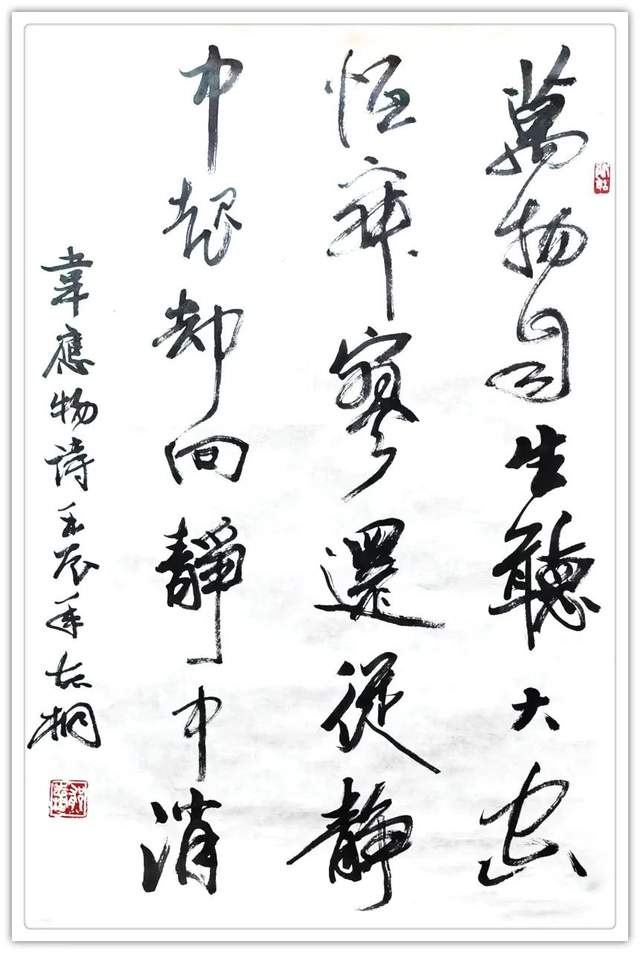 萬物自生聽大空
恆寂寥還從靜
中起却向靜中消
韋應物詩壬辰年桐